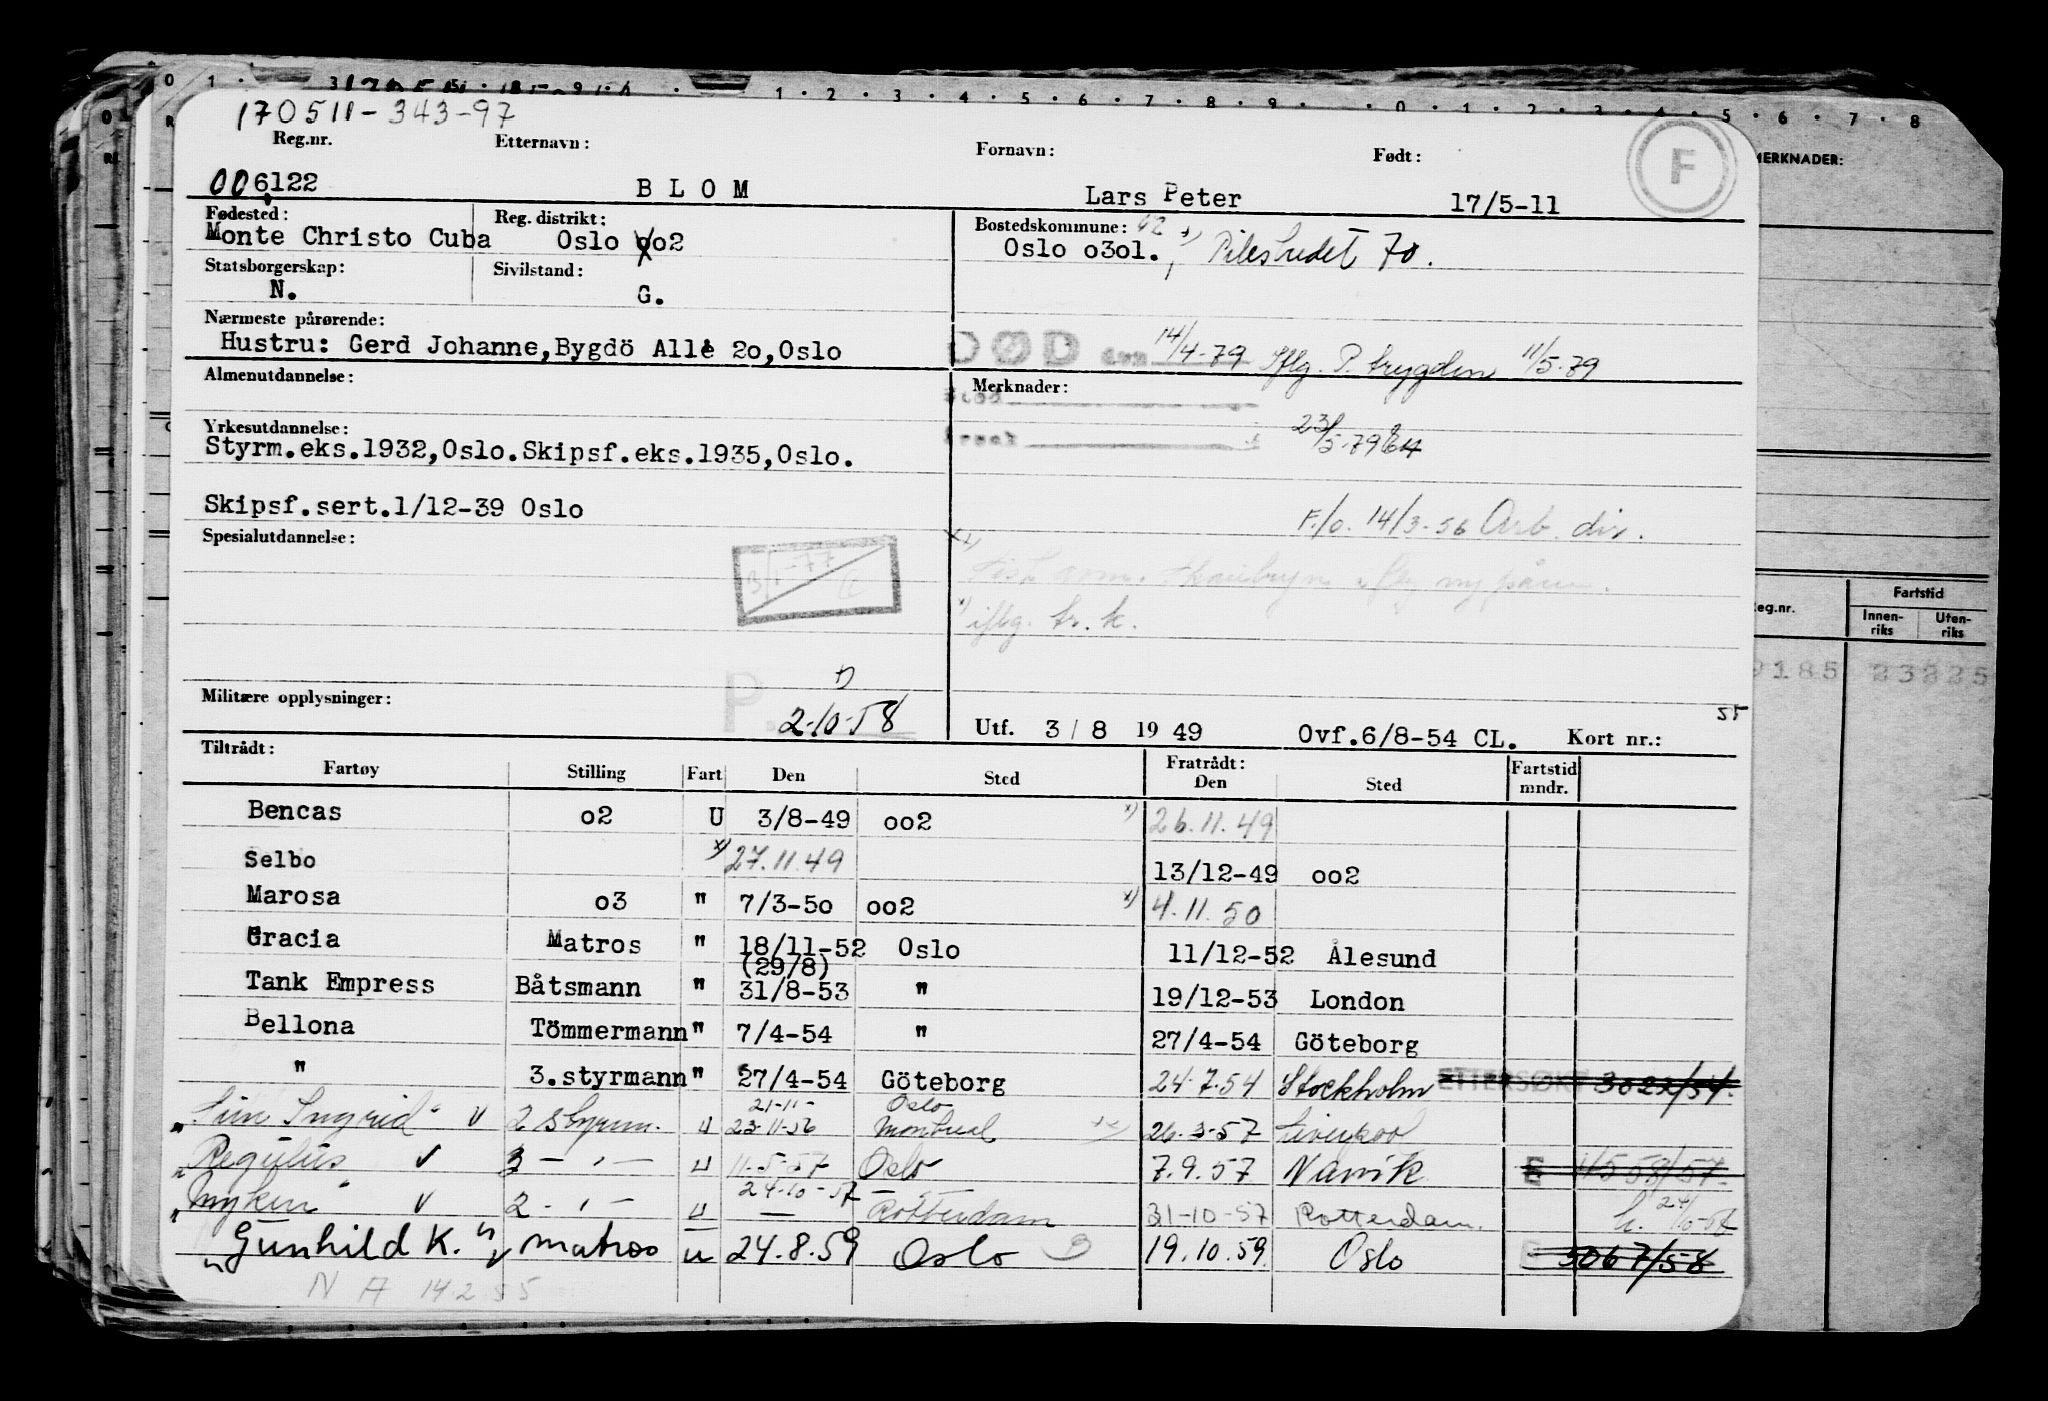 170511-343-97
Reg.nr. Etternavn: Fornavn: Født:
006122 BLOM Lars Peter 17/5-11
F
MERKNADER:
Fødested: Reg. distrikt: Bostedskommune:
Monte Christo Cuba Oslo oo2 Oslo o3o1. Pilestredet 70.
Statsborgerskap: Sivilstand:
N. G.
Nærmeste pårørende:
Hustru: Gerd Johanne, Bygdö Allé 2o, Oslo
DØD den 14/4-79 Iflg. P. trygden 11/5-79
Almenutdannelse: Merknader:
23/5-79
Yrkesutdannelse:
Styrm.eks.1932,Oslo.Skipsf.eks.1935,Oslo.
Skipsf.sert.1/12-39 Oslo
F./o. 14/3-56 Arb. dir.
Spesialutdannelse:
3/1-77
iflg. tr. k.
Militære opplysninger:
P. 2-10-58
Utf. 3/8 1949 Ovf.6/8-54 CL. Kort nr.: 55
Tiltrådt: Fratrådt:
Fartøy Stilling Fart Den Sted Den Sted Fartstid mndr.
Bencas o2 U 3/8-49 oo2 x) 26.11.49
Selbo x) 27.11.49 13/12-49 oo2
Marosa o3 " 7/3-5o oo2 x) 4.11.50
Gracia Matros " 18/11-52 Oslo 11/12-52 Ålesund
(29/8)
Tank Empress Båtsmann " 31/8-53 " 19/12-53 London
Bellona Tömmermann " 7/4-54 " 27/4-54 Göteborg
" 3.styrmann " 27/4-54 Göteborg 24.7.54 Stockholm ETTERSØKT 3022/54.
21-11- Oslo
"Sun Ingrid" v 2 styrm. u 23-11-56 Montreal 26.3-57 Liverpool
"Regulus v 3 - " - u 11-5-57 Oslo 7.9.57 Narvik E
24-10-57
"Myken" v 2 - " - u Rotterdam 31-10-57 Rotterdam.
"Gunhild K." v matros u 24.8.59 Oslo 19.10.59. Oslo E 5067/58
N A 14.2.55
Reg.nr. Fartstid
Innenriks Utenriks
9185 23225